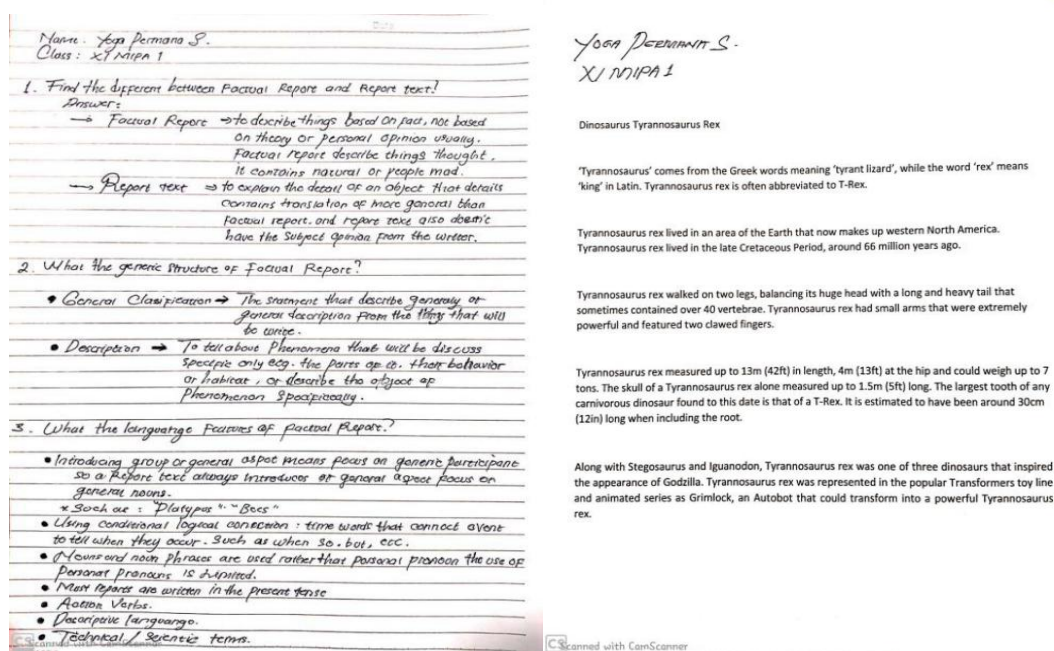 Name : Yoga Permana S.
Class : XI MIPA 1
1. Find the different between Factual Report and Report text!
Answer :
→ Factual Report → to describe things based on fact, not based
on theory or personal opinion usually.
Factual report describe things thought,
it contains natural or people mad.
→ Report text ⇒ to explain the detail of an object that details
contains translation of more general than
factual report. and report text also doesn't
have the subject opinion from the writer.
2. What the generic structure of Factual Report?
• General Clasification → The statment that describe generaly or
general description from the thing that will
be write.
• Description → To tell about Phenomena that will be discuss
specific only eg. the parts of it. their behavior
or habitat, or describe the object of
Phenomenon Specifically.
3. What the languange Features of factual Report?
• Introducing group or general aspet means focus on generic participant
so a Report text always introduces of general aspect focus on
general nouns.
* Such as : "Platypus" "Bees"
• Using conditional logical conection : time words that connect event
to tell when they occur. Such as when so, but, etc.
• Nouns and noun phrases are used rather that personal pronoun the use of
Personal Pronouns is Limited.
• Most reports are written in the present tense
• Action Verbs.
• Descriptive languange.
• Technical / Scientic terms.
CS Scanned with CamScanner
YOGA PERMANA S.
XI MIPA 1
Dinosaurus Tyrannosaurus Rex
'Tyrannosaurus' comes from the Greek words meaning 'tyrant lizard', while the word 'rex' means
'king' in Latin. Tyrannosaurus rex is often abbreviated to T-Rex.
Tyrannosaurus rex lived in an area of the Earth that now makes up western North America.
Tyrannosaurus rex lived in the late Cretaceous Period, around 66 million years ago.
Tyrannosaurus rex walked on two legs, balancing its huge head with a long and heavy tail that
sometimes contained over 40 vertebrae. Tyrannosaurus rex had small arms that were extremely
powerful and featured two clawed fingers.
Tyrannosaurus rex measured up to 13m (42ft) in length, 4m (13ft) at the hip and could weigh up to 7
tons. The skull of a Tyrannosaurus rex alone measured up to 1.5m (5ft) long. The largest tooth of any
carnivorous dinosaur found to this date is that of a T-Rex. It is estimated to have been around 30cm
(12in) long when including the root.
Along with Stegosaurus and Iguanodon, Tyrannosaurus rex was one of three dinosaurs that inspired
the appearance of Godzilla. Tyrannosaurus rex was represented in the popular Transformers toy line
and animated series as Grimlock, an Autobot that could transform into a powerful Tyrannosaurus
rex.
CS Scanned with CamScanner